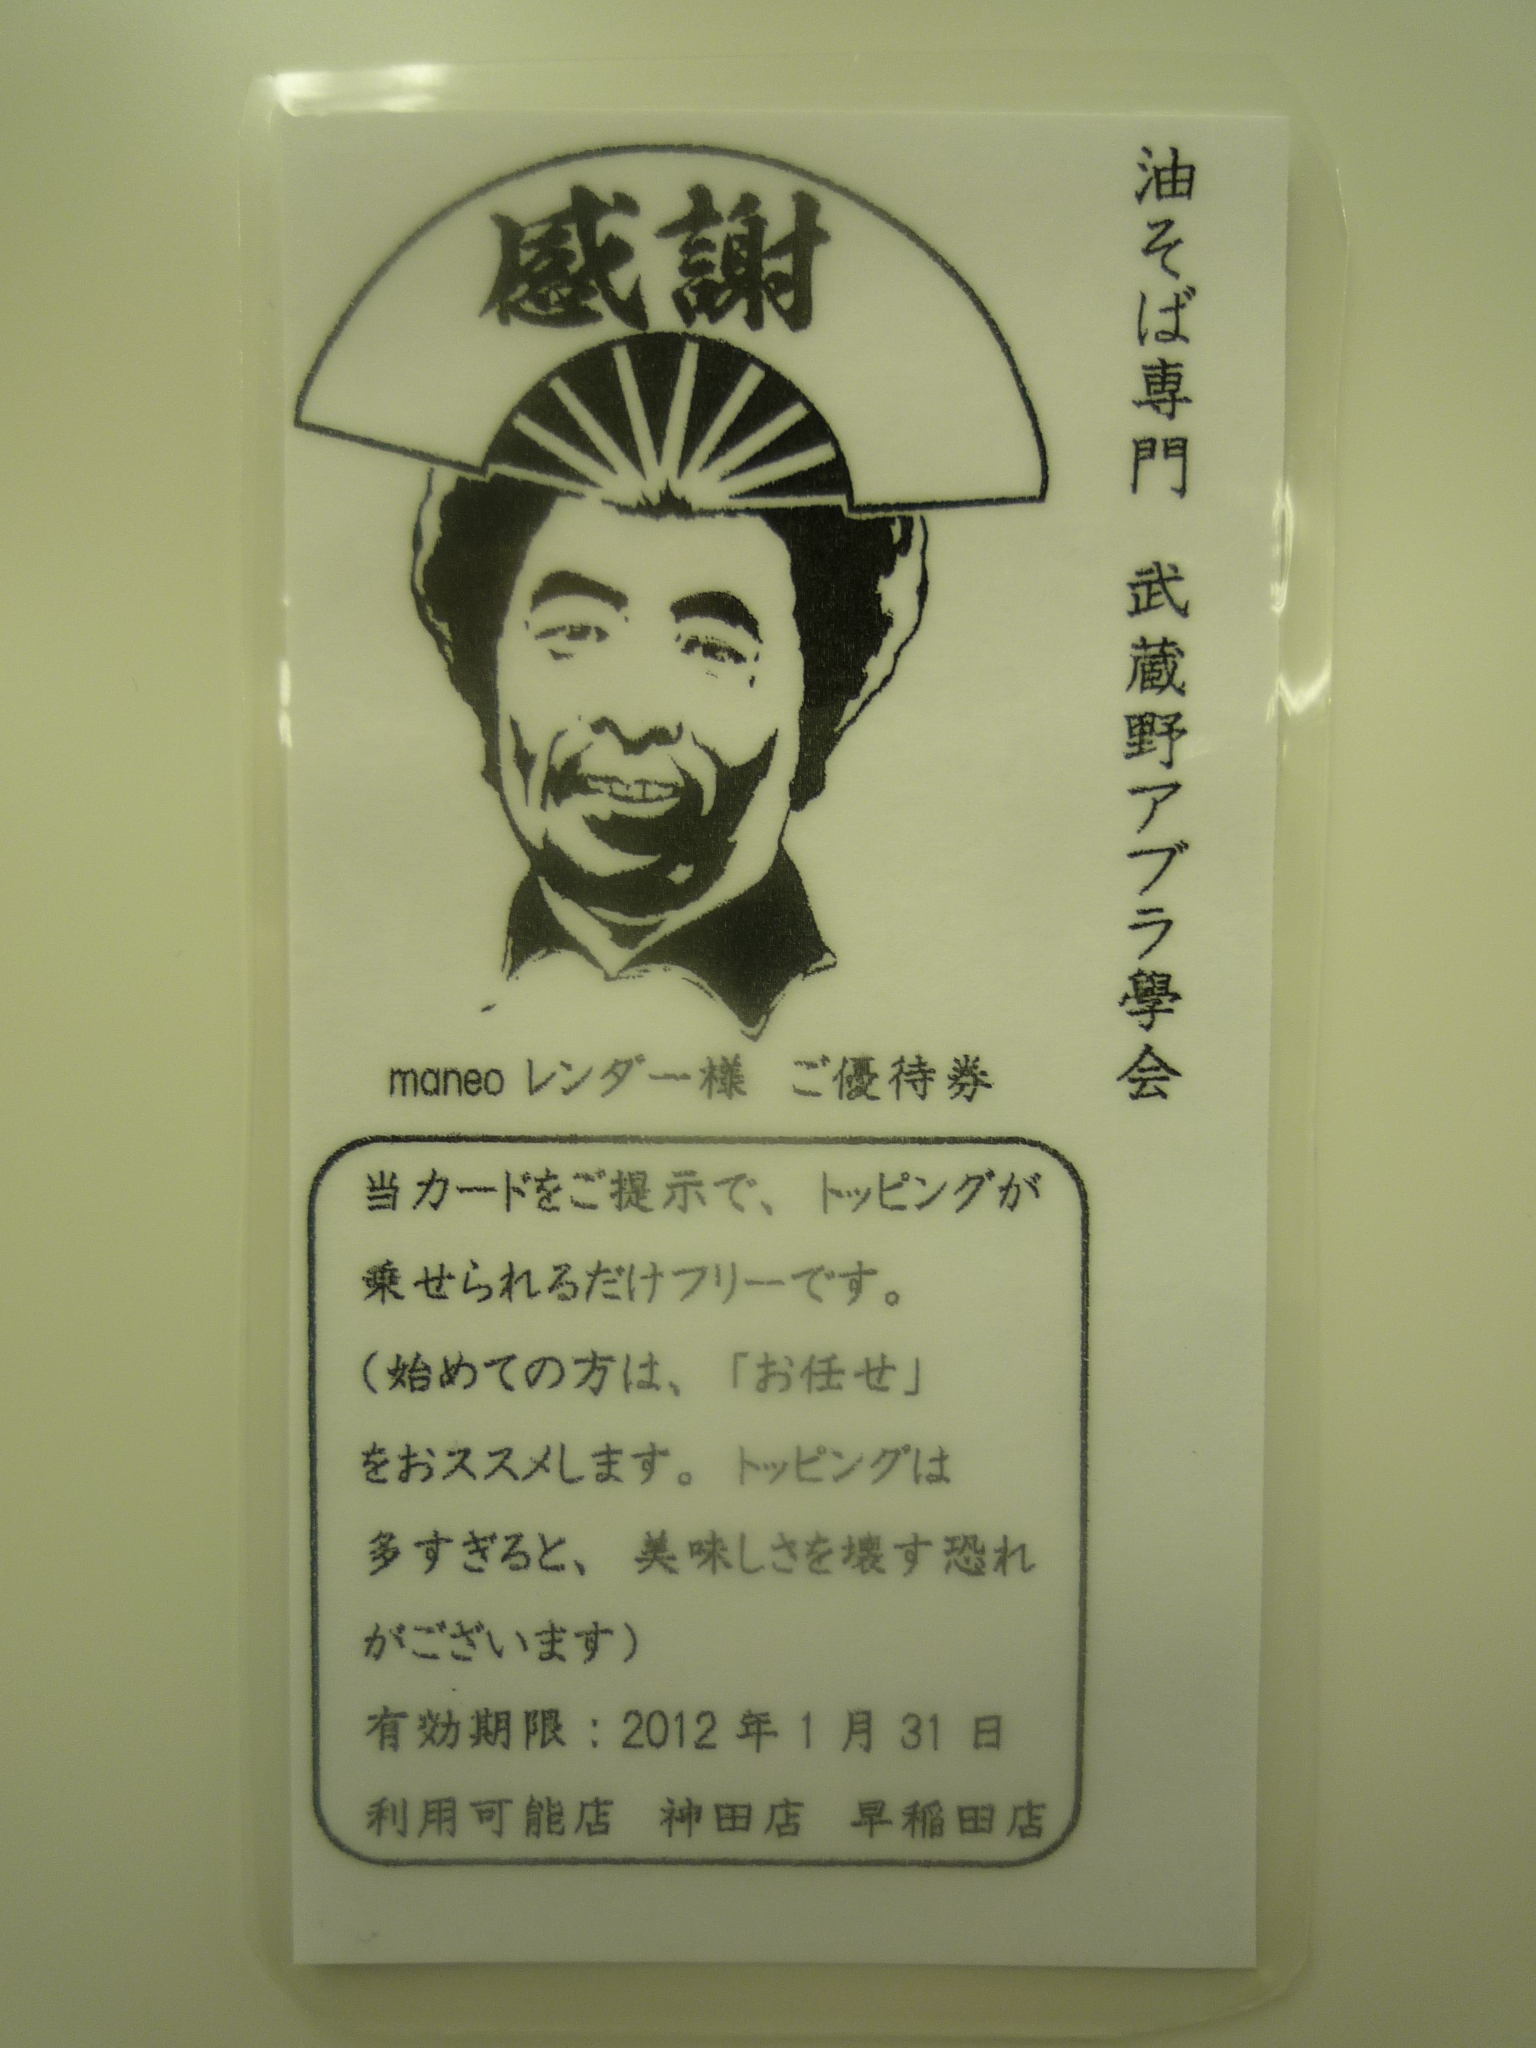 油そば専門 武蔵野アブラ學会
感謝
maneo レンダー様 ご優待券
当カードをご提示で、トッピングが
乗せられるだけフリーです。
（始めての方は、「お任せ」
をおススメします。トッピングは
多すぎると、美味しさを壊す恐れ
がございます）
有効期限：2012 年 1 月 31 日
利用可能店 神田店 早稲田店